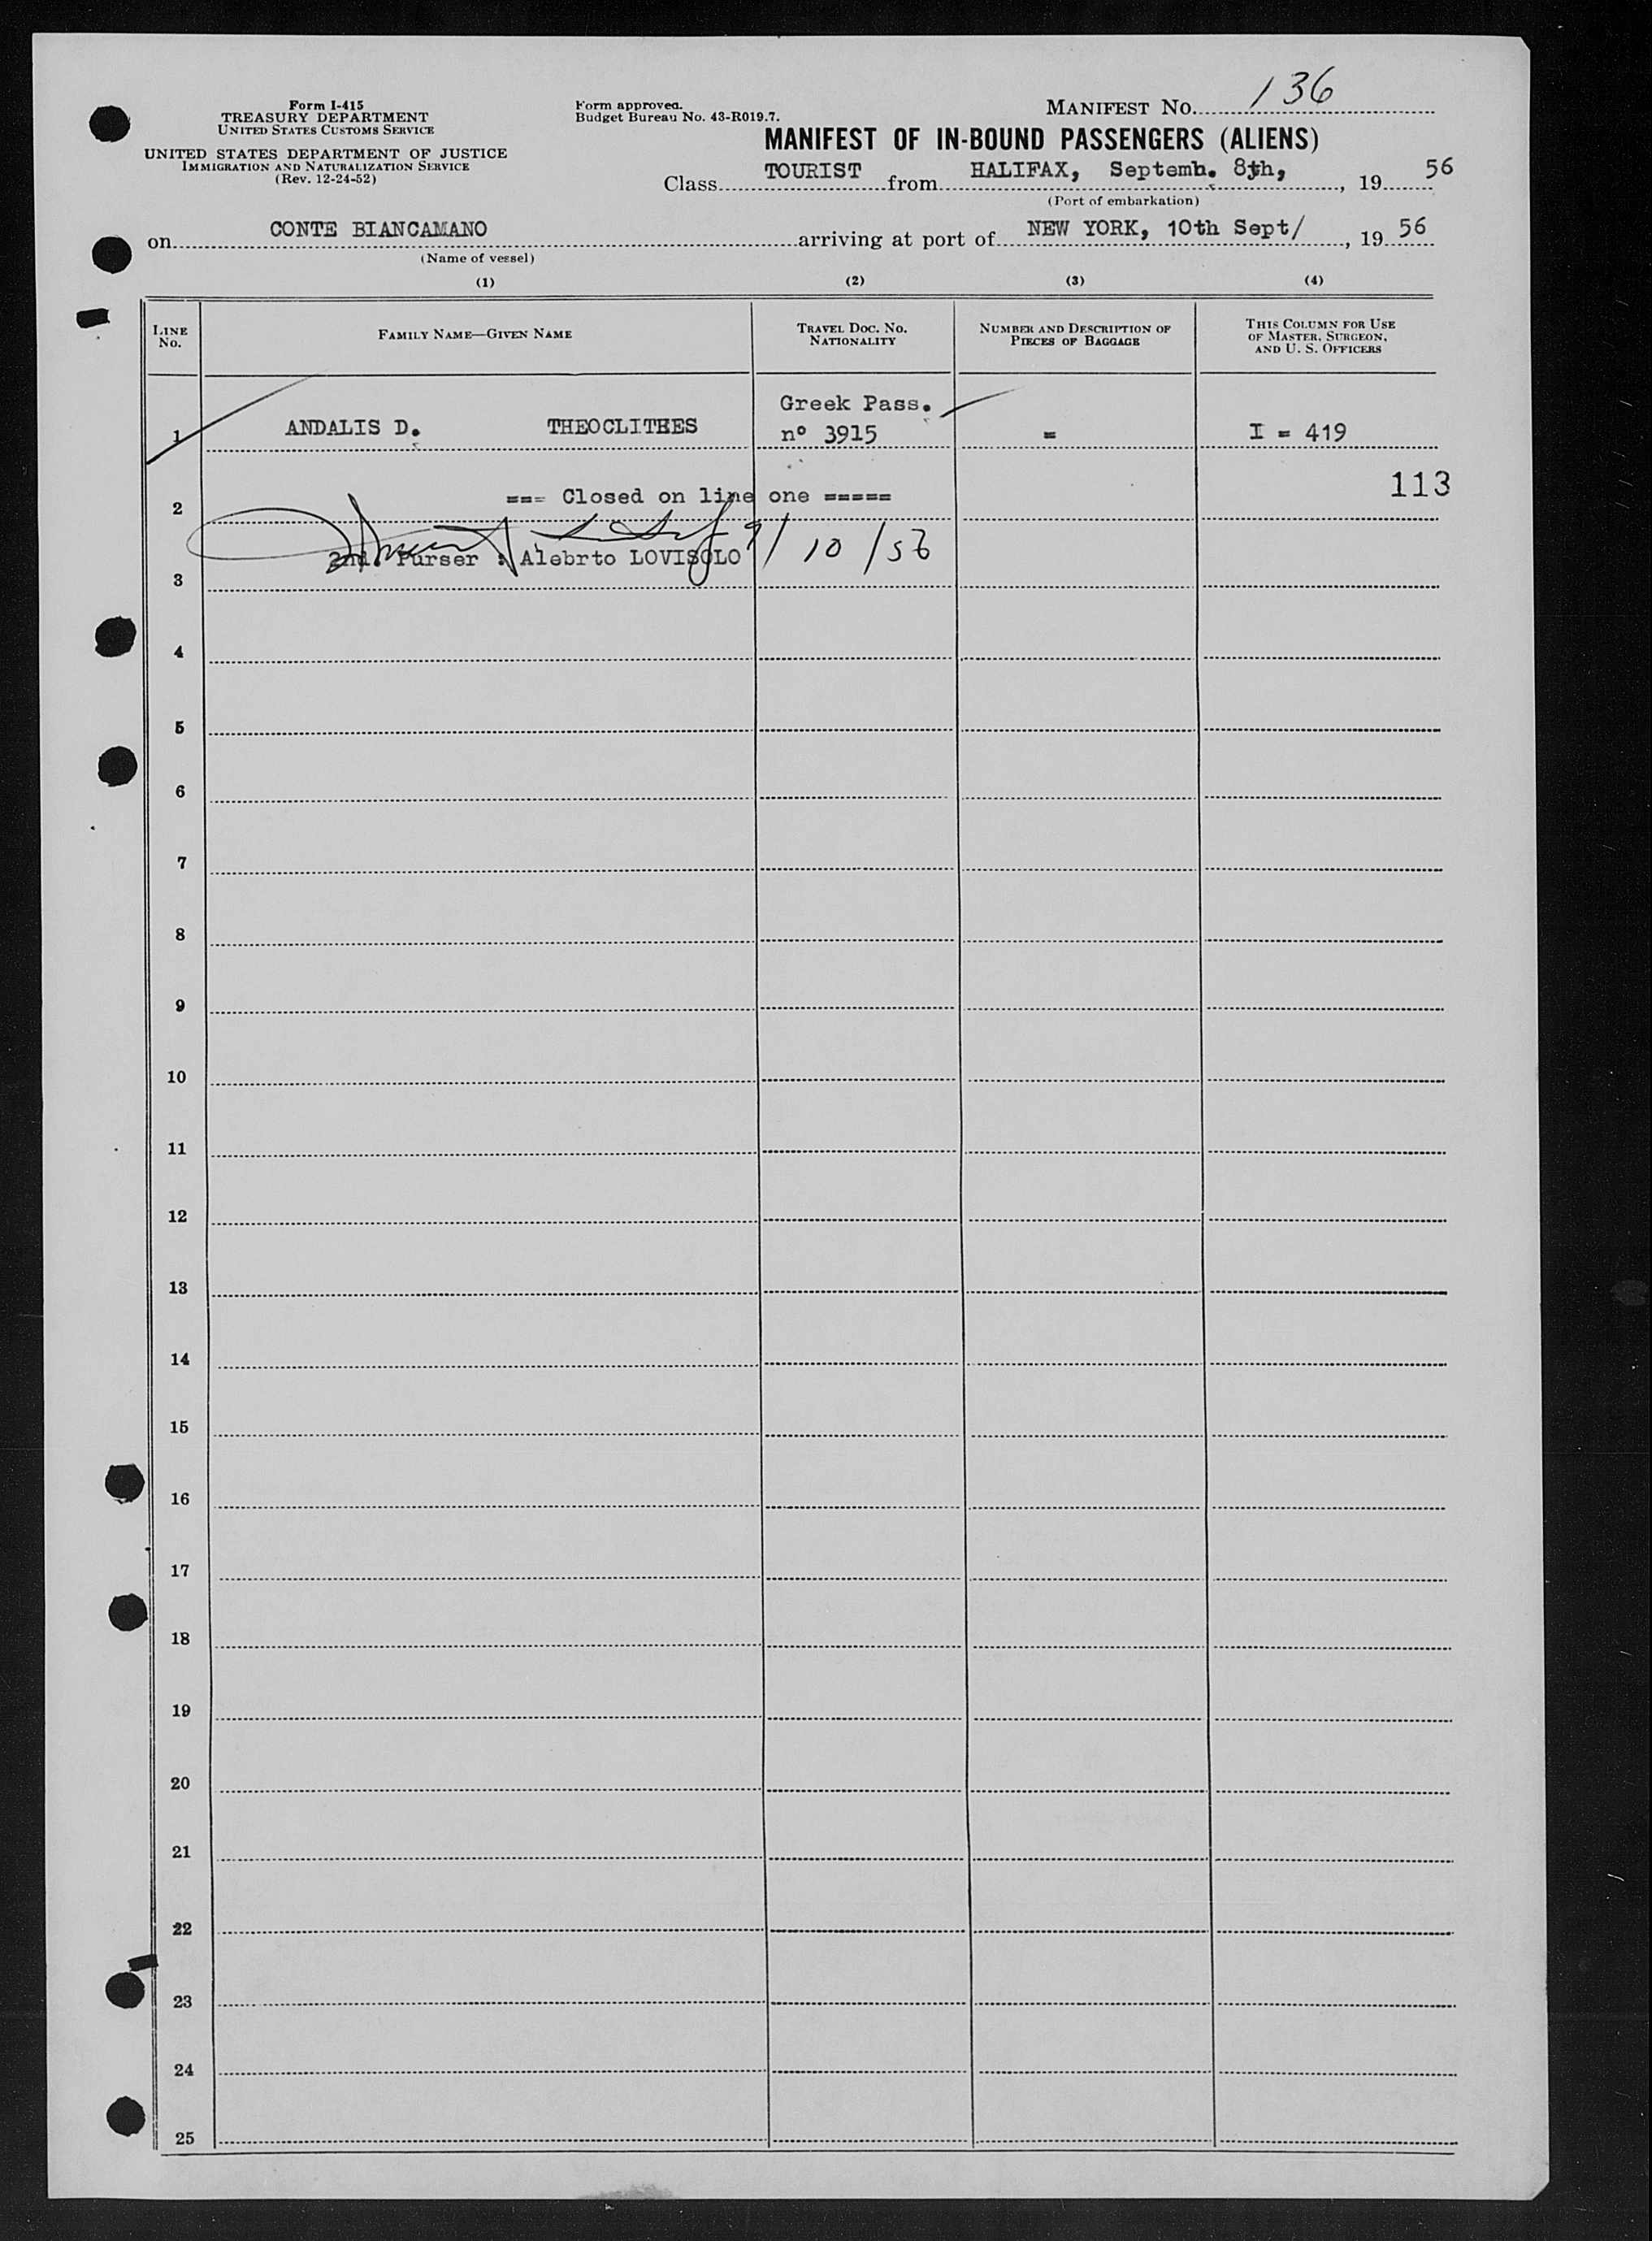 Form I-415
TREASURY DEPARTMENT
UNITED STATES CUSTOMS SERVICE
UNITED STATES DEPARTMENT OF JUSTICE
IMMIGRATION AND NATURALIZATION SERVICE
(Rev. 12-24-52)
Form approved.
Budget Bureau No. 43-R019.7.
MANIFEST NO. 136
MANIFEST OF IN-BOUND PASSENGERS (ALIENS)
Class TOURIST from HALIFAX, Septemb. 8th, , 19 56
(Port of embarkation)
on CONTE BIANCAMANO arriving at port of NEW YORK, 10th Sept/ , 19 56
(Name of vessel)
(1) (2) (3) (4)
LINE NO. FAMILY NAME—GIVEN NAME TRAVEL DOC. NO. NATIONALITY NUMBER AND DESCRIPTION OF PIECES OF BAGGAGE THIS COLUMN FOR USE OF MASTER, SURGEON, AND U. S. OFFICERS
Greek Pass.
1 ANDALIS D. THEOCLITEES nº 3915 = I = 419
113
2 === Closed on line one =====
2nd. Purser : Alebrto LOVISOLO 9/10/56
3
4
5
6
7
8
9
10
11
12
13
14
15
16
17
18
19
20
21
22
23
24
25